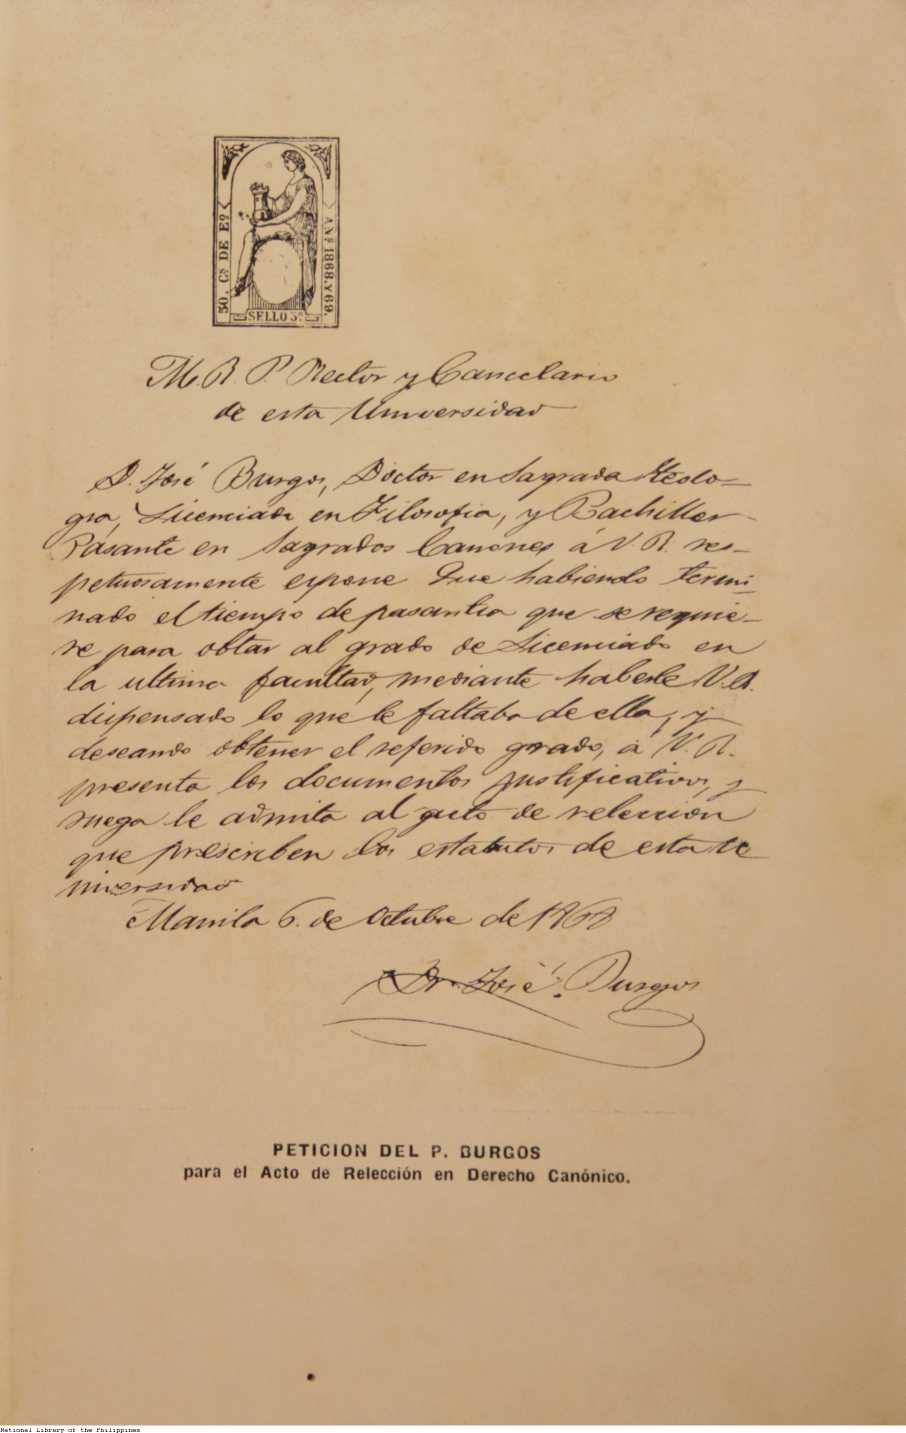 50. Cs DE Eo
AÑOS 1868 Y 69.
SELLO 3º
M. R. P. Rector y Cancelario
de esta Universidad
D. José Burgos, Doctor en Sagrada Teolo-
gia, Licenciado en Filosofia, y Bachiller
Pasante en Sagrados Canones á V. R. res-
petuosamente expone Que habiendo termi-
nado el tiempo de pasantia que se requie-
re para obtar al grado de Licenciado en
la ultima facultad, mediante haberle V. R.
dispensado lo que le faltaba de ella, y
deseando obtener el referido grado, á V. R.
presenta los documentos justificativos, y
ruega le admita al acto de relección
que prescriben los estatutos de esta U
niversidad
Manila 6. de Octubre de 1868
Dr. José Burgos
PETICION DEL P. BURGOS
para el Acto de Relección en Derecho Canónico.
National Library of the Philippines